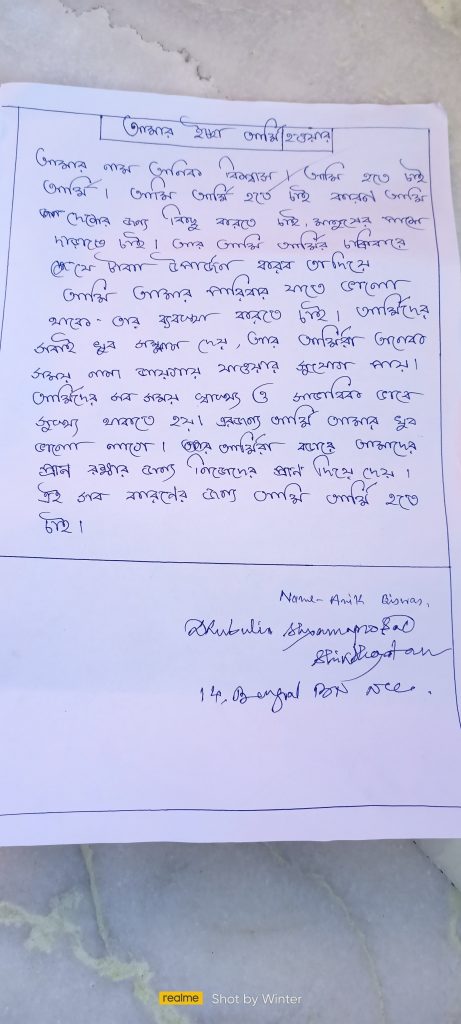 আমার ইচ্ছা আর্মি হওয়ার
আমার নাম অনিক বিশ্বাস । আমি হতে চাই
আর্মি । আমি আর্মি হতে চাই কারন আমি
দেশের জন্য কিছু করতে চাই, মানুষের পাশে
দাড়াতে চাই । আর আমি আর্মির চাকিরারে
যে টাকা উপার্জন করব তা দিয়ে
আমি আমার পারিবার যাতে ভালো
থাকে তার ব্যবস্থা করতে চাই । আর্মিদের
সবাই খুব সম্মান দেয়, আর আর্মিরা অনেক
সময় নানা জায়গায় যাওয়ার সুযোগ পায় ।
আর্মিদের সব সময় স্বাস্থ্য ও সাভাবিক ভাবে
সুস্থ্য থাকতে হয় । এরজন্য আর্মি আমার খুব
ভালো লাগে । আর আর্মিরা আমাদের
প্রান রক্ষার জন্য নিজেদের প্রান দিয়ে দেয় ।
এই সব কারনের জন্য আমি আর্মি হতে
চাই ।
Name- Anik Biswas,
Dhubulia Shyamaprosad
Shikshayatan
14, Bengal BN NCC.
realme Shot by Winter